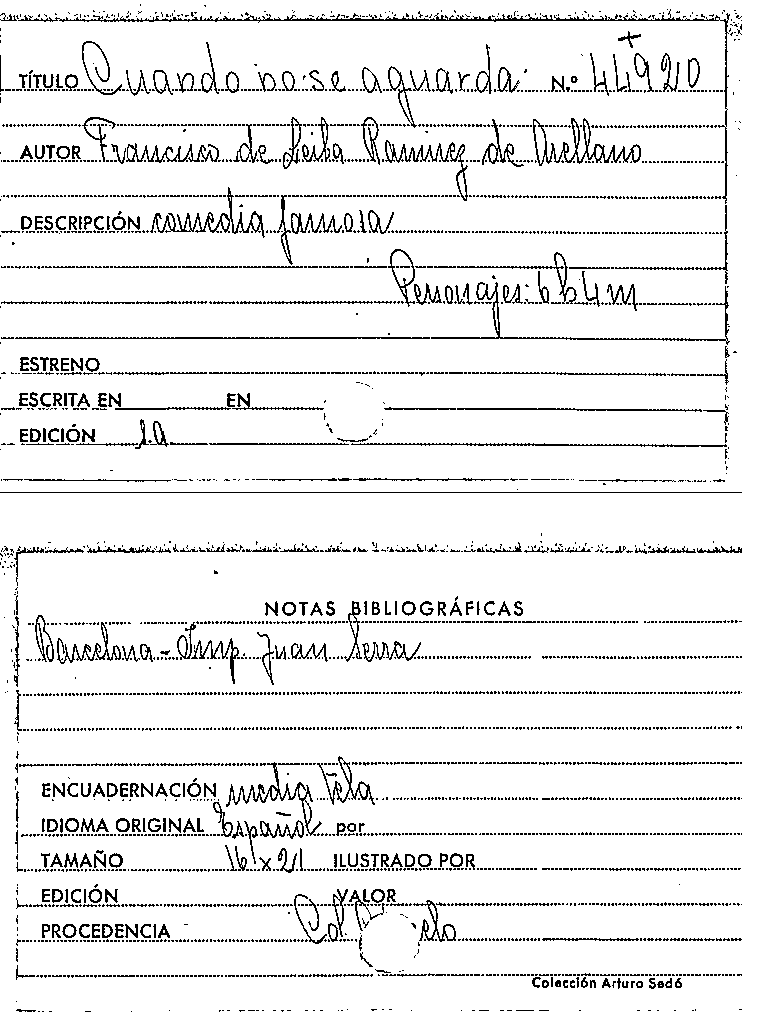 TÍTULO Cuando no se aguarda N.º 44920
AUTOR Francisco de Leiba Ramirez de Arellano
DESCRIPCIÓN comedia famosa
Personajes: 6 h 4 m
ESTRENO
ESCRITA EN EN
EDICIÓN s.a.
NOTAS BIBLIOGRÁFICAS
Barcelona - Imp. Juan Serra
ENCUADERNACIÓN media tela
IDIOMA ORIGINAL Español por
TAMAÑO 16 x 21 ILUSTRADO POR
EDICIÓN VALOR
PROCEDENCIA Col.
Colección Arturo Sedó